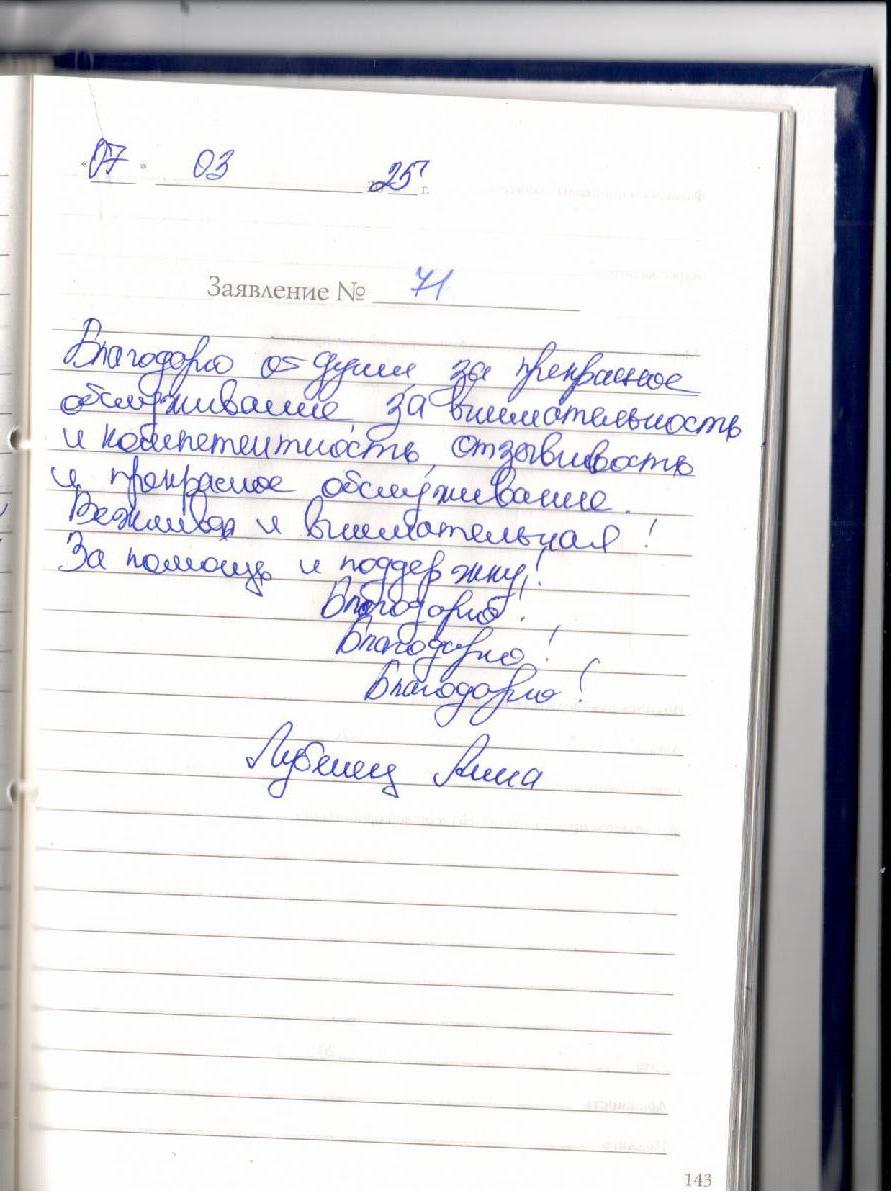 «07» 03 2025 г.
Заявление № 71
Благодарю от души, за прекрасное
обслуживание, за внимательность
и компетентность, отзывчивость
и прекрасное обслуживание.
Вежливая и внимательная!
За помощь и поддержку!
Благодарю!
Благодарю!
Благодарю!
Лубенец Анна
143